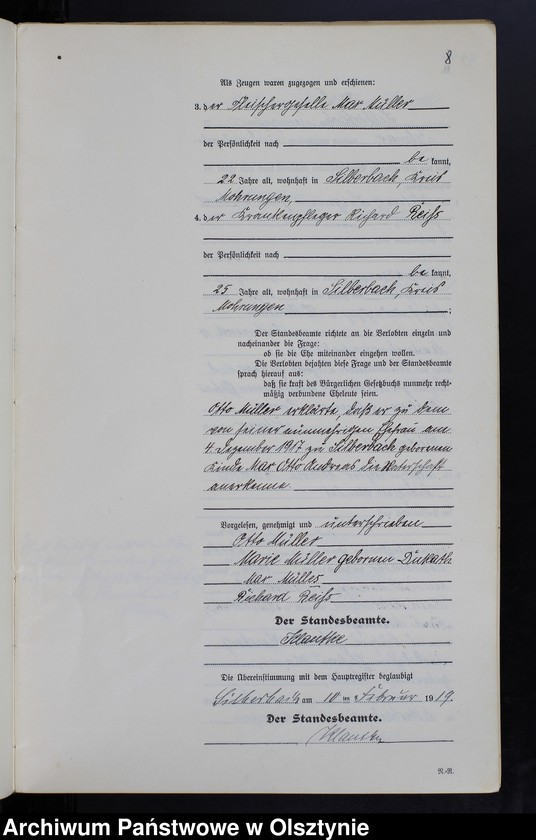 8
Als Zeugen waren zugezogen und erschienen:
3. der Fleischergeselle Max Müller
der Persönlichkeit nach
be kannt,
22 Jahre alt, wohnhaft in Silberbach, Kreis
Mohrungen,
4. der Krankenpfleger Richard Reiß
der Persönlichkeit nach
be kannt,
25 Jahre alt, wohnhaft in Silberbach, Kreis
Mohrungen ;
Der Standesbeamte richtete an die Verlobten einzeln und
nacheinander die Frage:
ob sie die Ehe miteinander eingehen wollen.
Die Verlobten bejahten diese Frage und der Standesbeamte
sprach hierauf aus:
daß sie kraft des Bürgerlichen Gesetzbuchs nunmehr recht-
mäßig verbundene Eheleute seien.
Otto Müller erklärte, daß er zu dem
von seiner nunmehrigen Ehefrau am
4. Dezember 1917 zu Silberbach geborenen
Kinde Max Otto Andreas die Vaterschaft
anerkenne.
Vorgelesen, genehmigt und unterschrieben
Otto Müller
Marie Müller geborenen
Max Müller
Richard Reiß
Der Standesbeamte.
Klautke
Die Übereinstimmung mit dem Hauptregister beglaubigt
Silberbach am 10 ten Februar 1919.
Der Standesbeamte.
Klautke
R.-R.
Archiwum Państwowe w Olsztynie